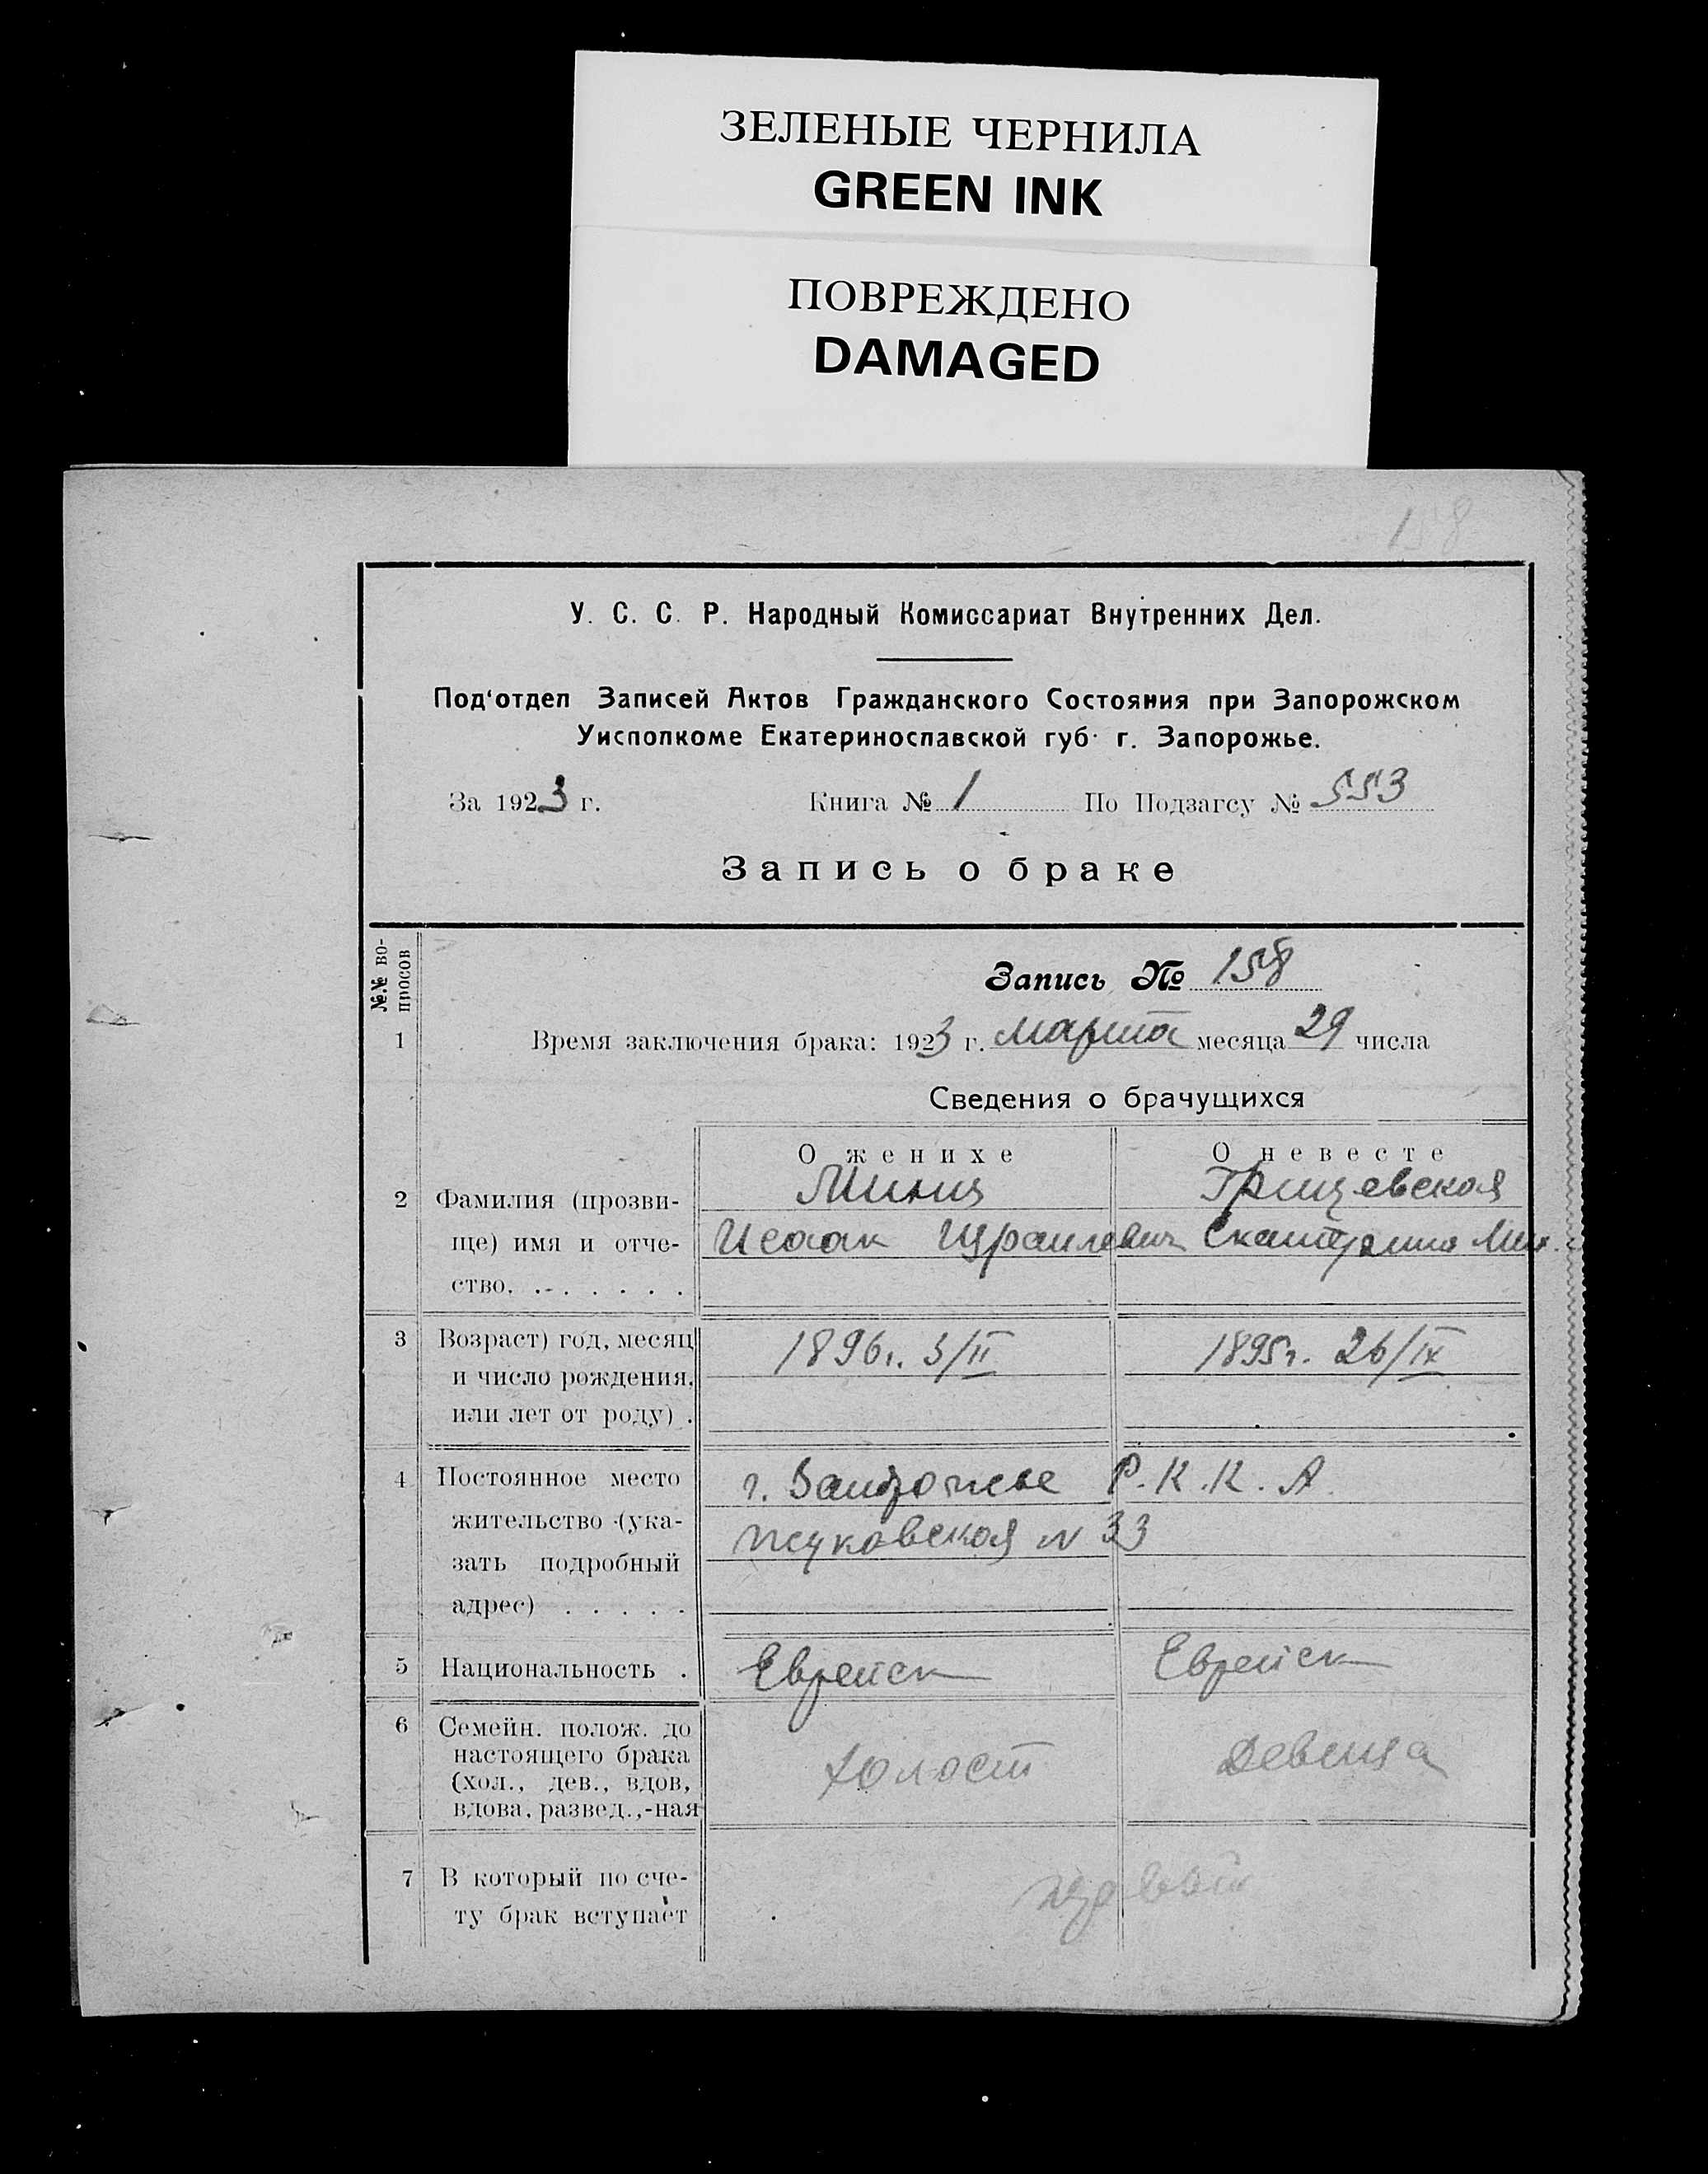 ЗЕЛЕНЫЕ ЧЕРНИЛА
GREEN INK
ПОВРЕЖДЕНО
DAMAGED
158
У. С. С. Р. Народный Комиссариат Внутренних Дел.
Под'отдел Записей Актов Гражданского Состояния при Запорожском
Уисполкоме Екатеринославской губ. г. Запорожье.
За 1923 г. Книга № 1 По Подзагсу № 553
Запись о браке
№№ во-
просов
Запись № 158
1 Время заключения брака: 1923 г. марта месяца 29 числа
Сведения о брачущихся
О женихе О невесте
2 Фамилия (прозви- Минц Грищевская
ще) имя и отче- Исаак Израилевич Екатерина Мих.
ство. . . . . . .
3 Возраст) год, месяц 1896г. 3/II 1895г. 26/IX
и число рождения.
или лет от роду) .
4 Постоянное место г. Запорожье Р.К.К.А.
жительство (ука- Жуковская N 33
зать подробный
адрес) . . . . .
5 Национальность . Еврейск Еврейск
6 Семейн. полож. до
настоящего брака холост девица
(хол., дев., вдов,
вдова, развед.,-ная
7 В который по сче-
ту брак вступает